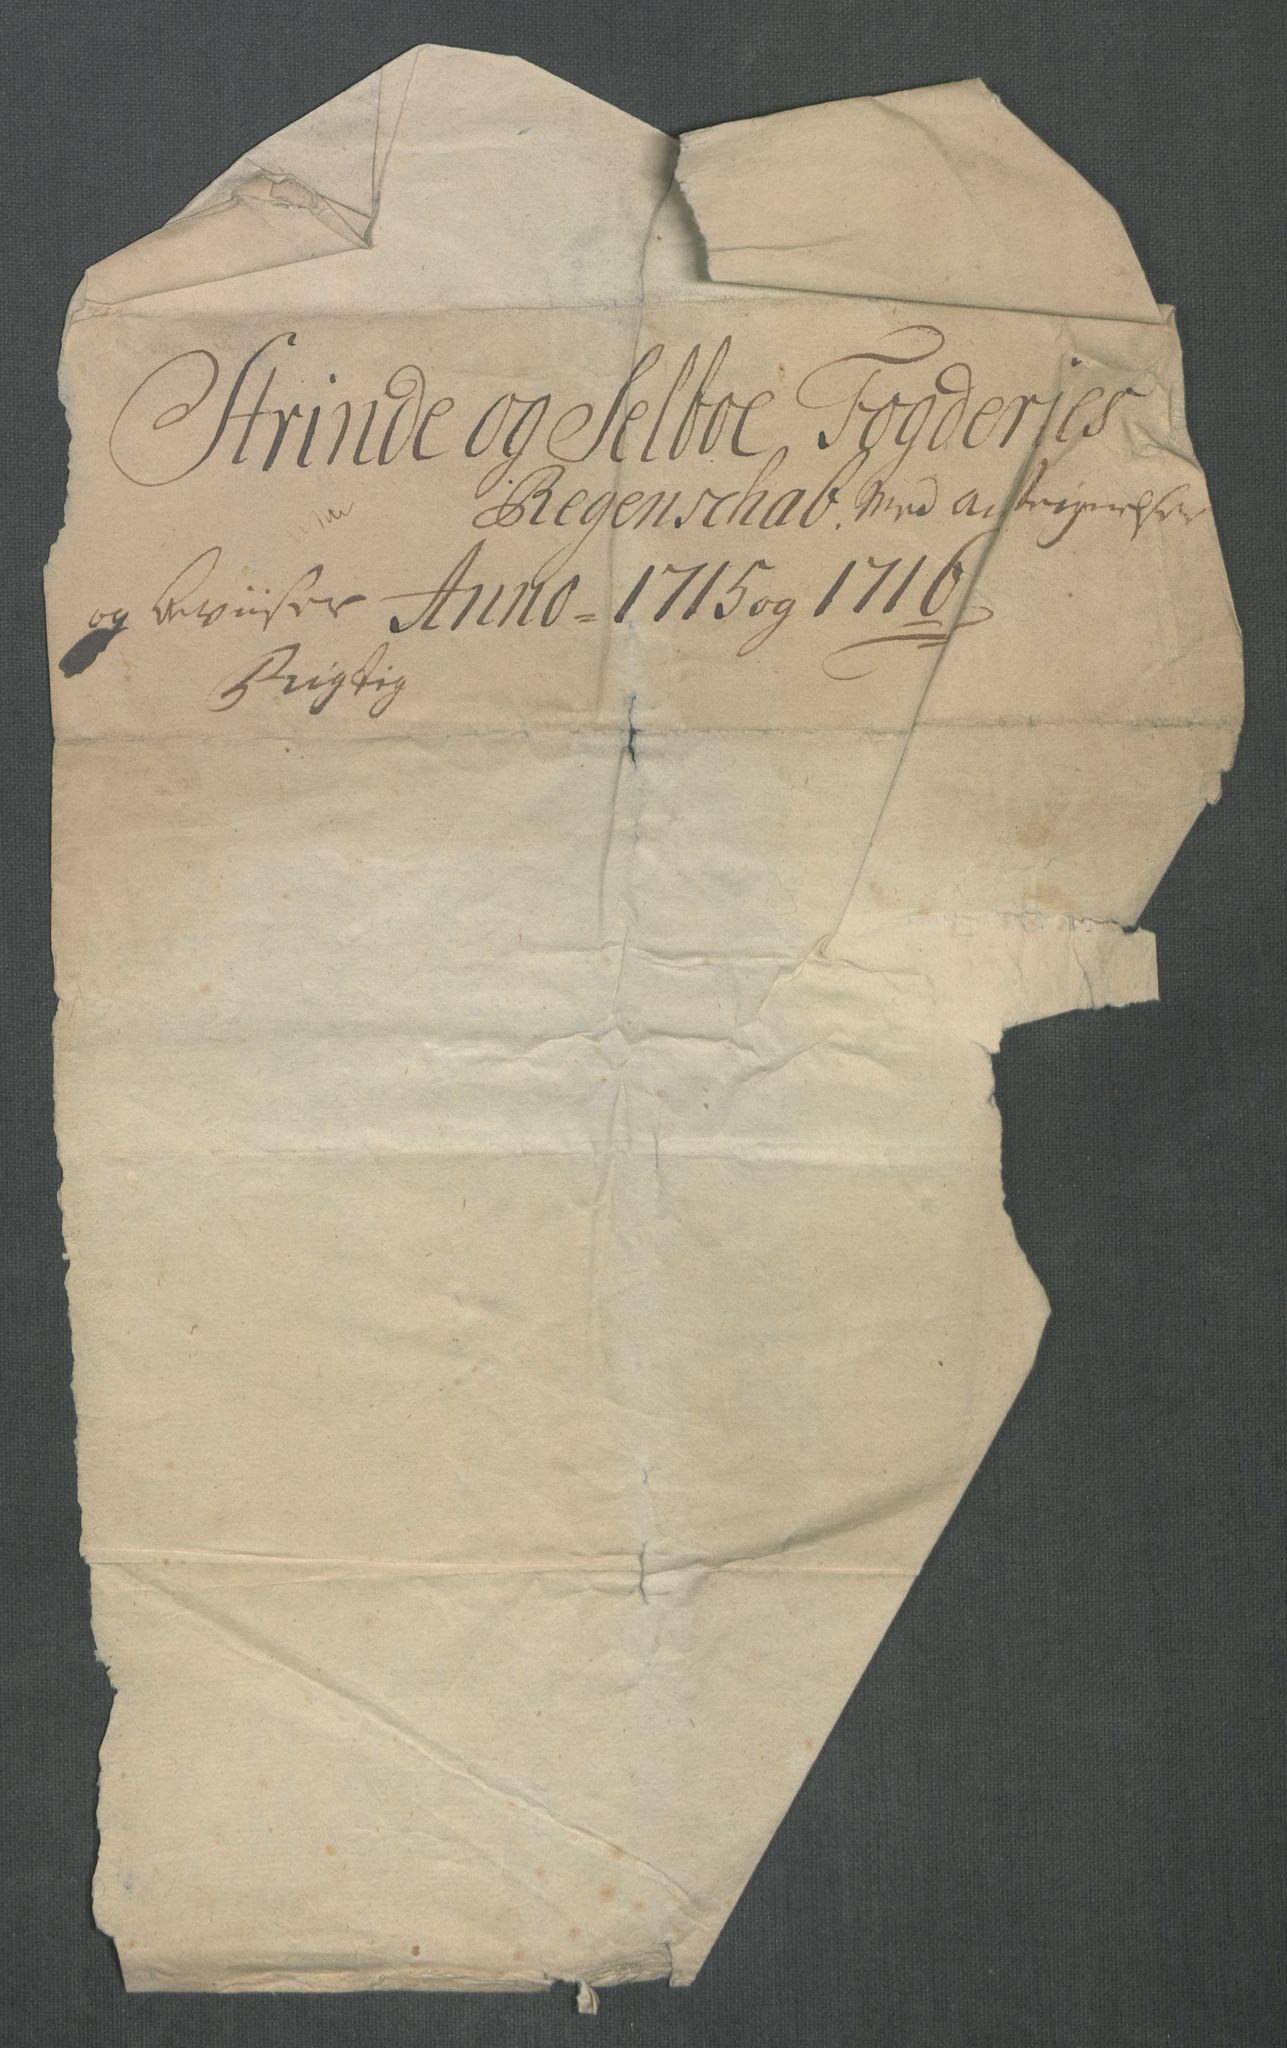 Strinde og Selboe Fogderies
Regenschab. Med Antegnelser
og Beviiser Anno = 1715 og 1716
Rigtig